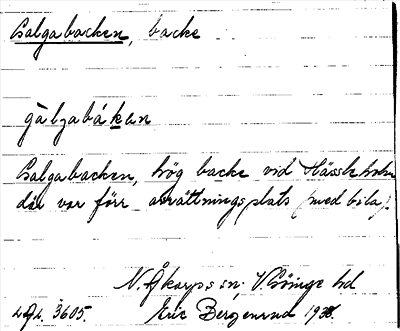 Galgabacken, backe
gàlgabákan
Galgabacken, hög backe vid Hässleholm
där var förr avrättningsplats (med bila).
N. Åkarps sn, V. Göinge hd
3605. Eric Bergenrud 1938.